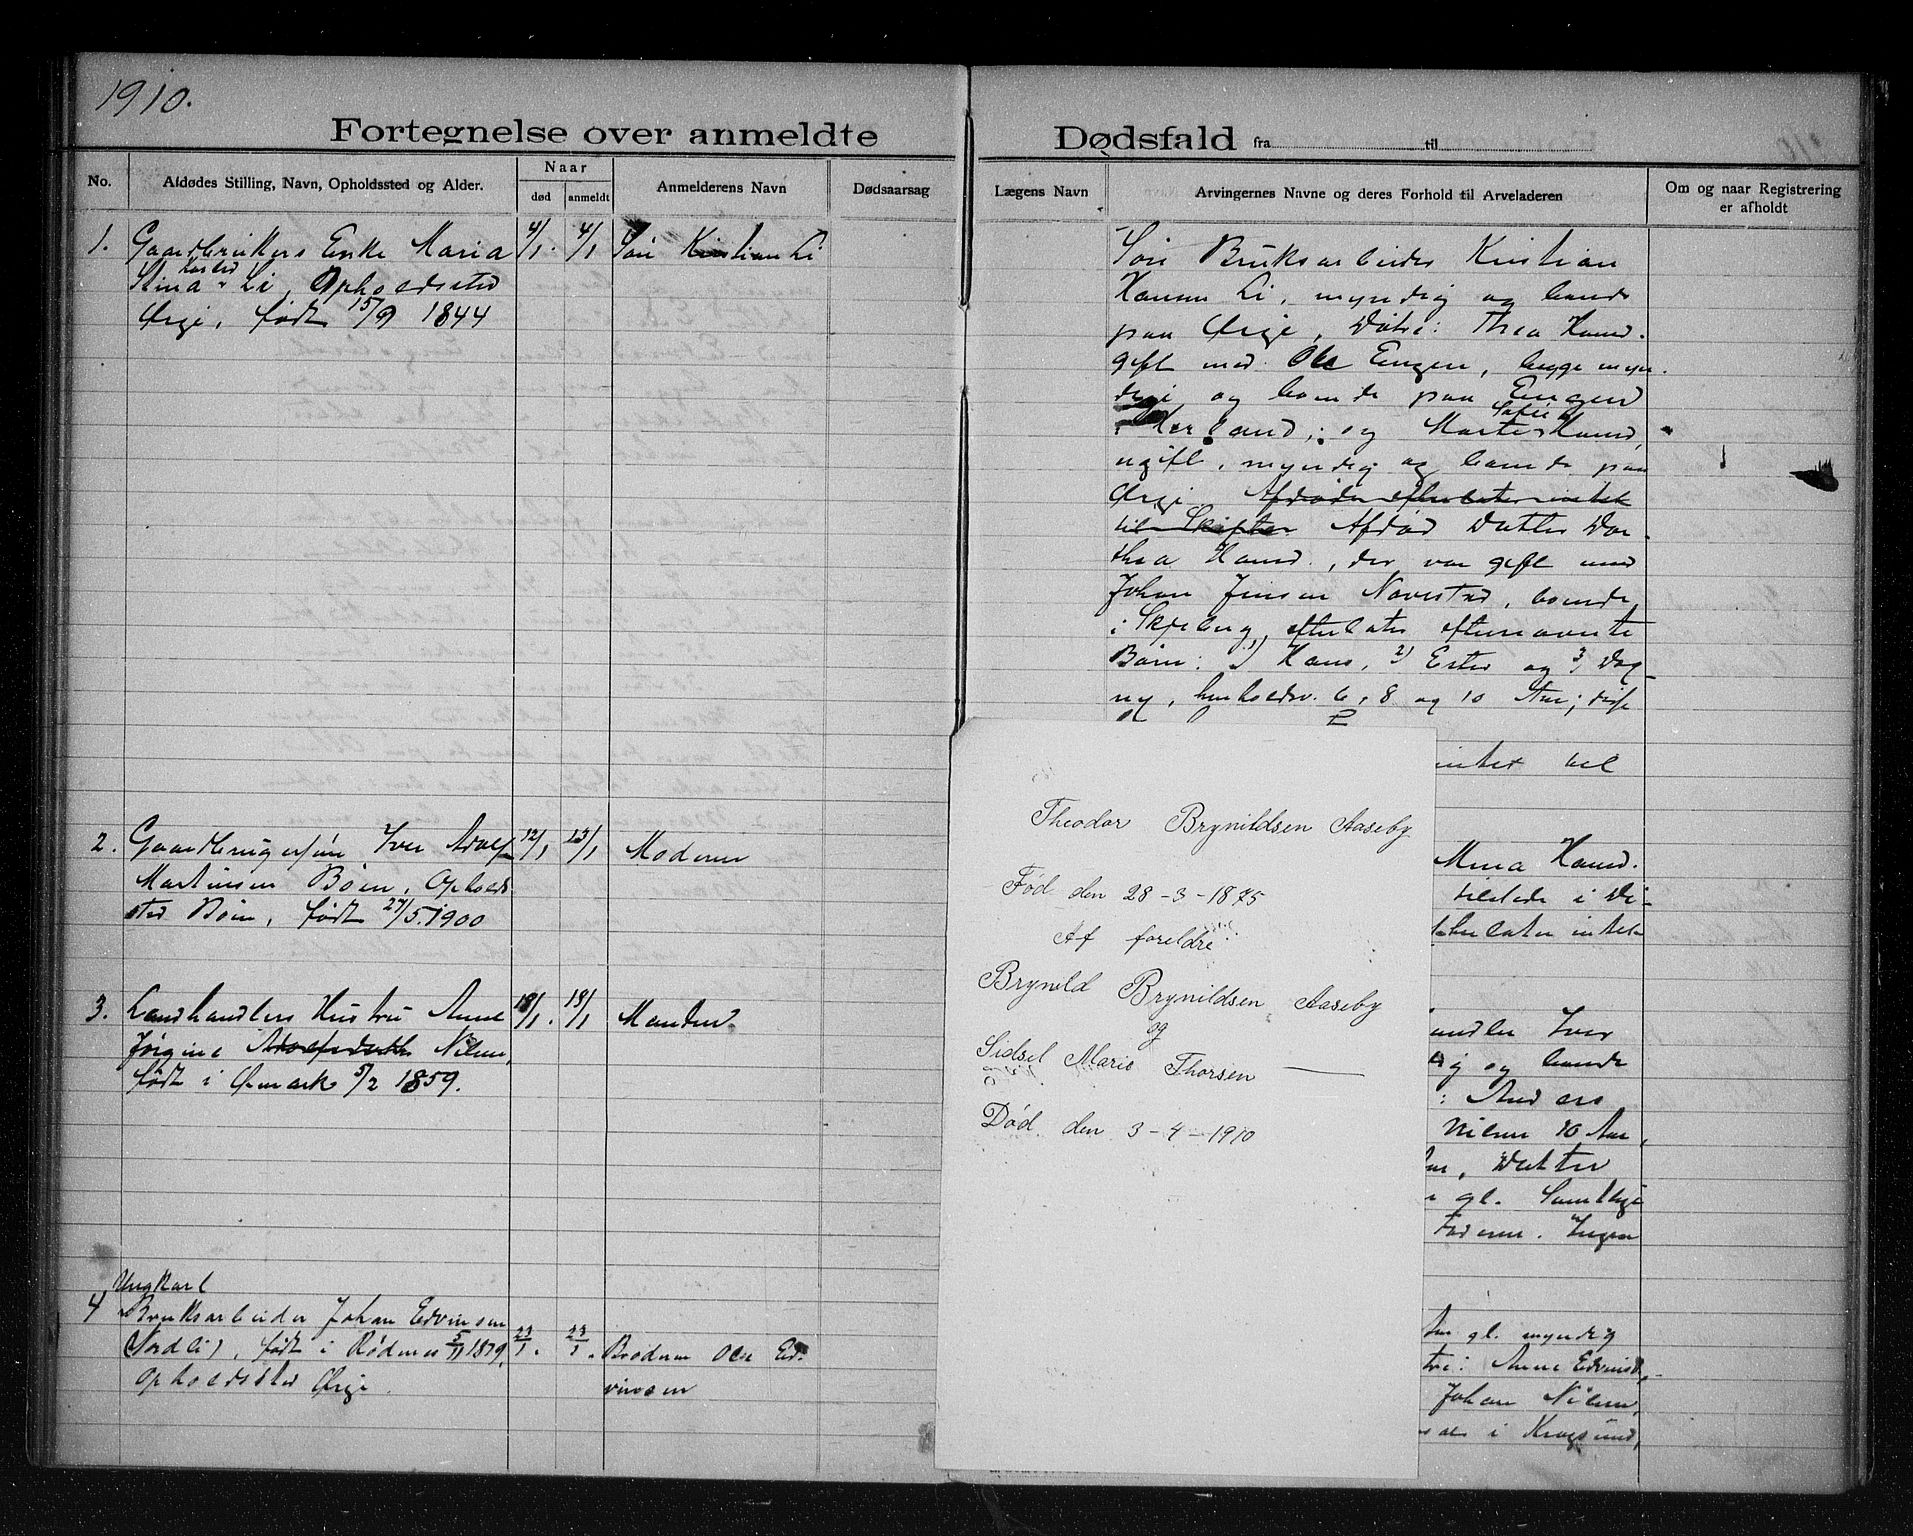 1910.
Fortegnelse over anmeldte
Dødsfald fra til
No.
Afdødes Stilling, Navn, Opholdssted og Alder.
Naar
død
anmeldt
Anmelderens Navn
Dødsaarsag
Lægens Navn
Arvingernes Navne og deres Forhold til Arveladeren
Om og naar Registrering
er afholdt
1.
Gaardbrukers Enke Maria
Stina Li, Opholdssted
Ørje, født 15/9 1844
4/1.
4/1
Søn Kristian Li
Søn Bruksarbeider Kristian
Hansen Li, myndig og boende
paa Ørje, Døtre: Thea Hansd.
gift med Ole Engen, begge myn-
dige og boende paa Engen
i og Marte Sofie Hansd,
ugift, myndig og boende paa
Ørje. Afdøde efterlater intet
til Skifte. Afdød Datter Dor-
thea Hansd., der var gift med
Johan Jensen Navestad, boende
i Skjeberg, efterlater efternævnte
Børn: 1) Hans, 2) Ester og 3) Dag-
ny, henholdsv. 6, 8 og 10 Aar; disse
intet til
2.
Gaardbrugersøn Iver Adolf
Martinsen Bøen, Opholds-
sted Bøen, født 27/5.1900
12/1
13/1
Moderen
Mina Hansd.
tilstede i Di-
efterlater intet
3.
Landhandlers Hustru Anne
Jørgine Nilsen,
født i Ømark 5/2 1859.
18/1.
18/1
Manden.
handler Iver
ig og boende
: Anders
Nilsen 10 Aar,
Datter
gl. Samtlige
Faderen. Ingen
Ungkarl
4
Bruksarbeider Johan Edvinsen
Nordli), født i Rødenes 5/11 1879,
Opholdssted Ørje.
23/1.
23/1.
Broderen Ole Ed-
vinsen
gl. myndig
: Anne Edvinsd.,
Johan Nilsen,
i Krogsund,
Theodor Brynildsen Aaseby
Fød den 28-3-1875
Af foreldre
Brynild Brynildsen Aaseby
og
Sidsel Marie Thorsen —
Død den 3-4-1910